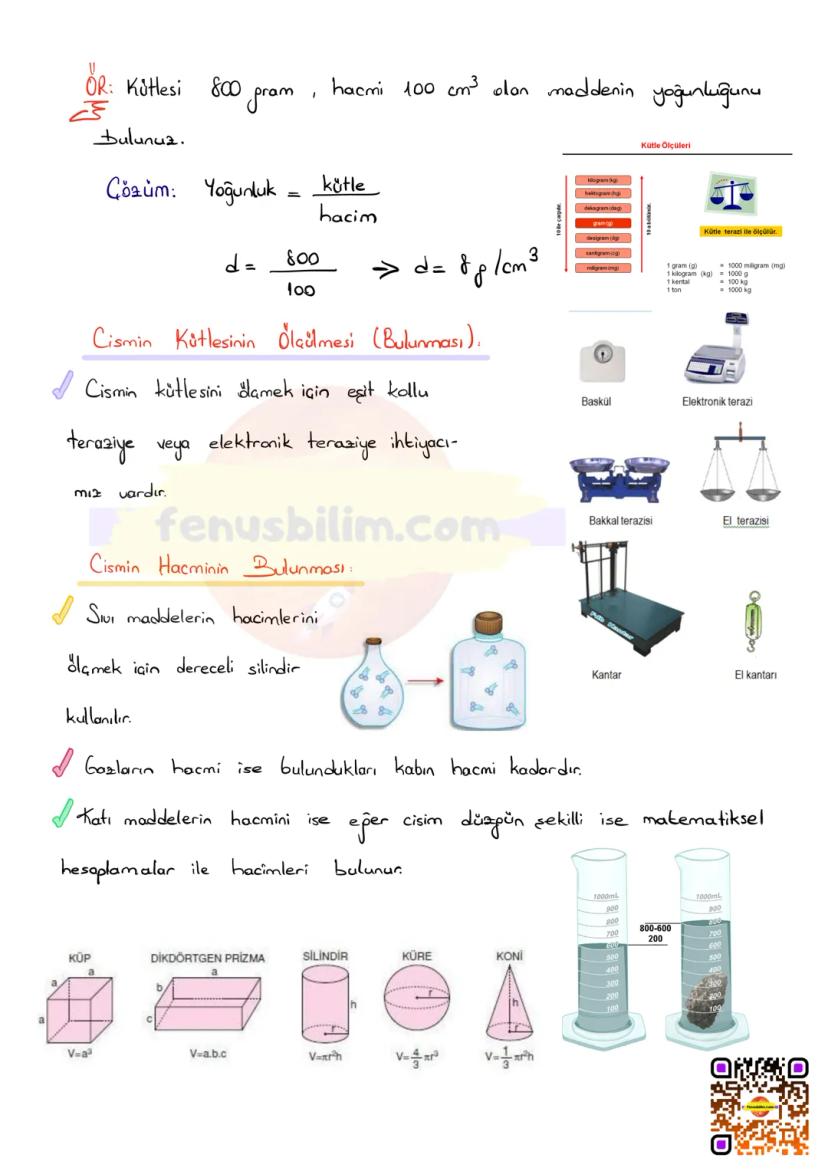 ÖR: Kütlesi 800 gram, hacmi 100 cm³ olan maddenin yoğunluğunu
bulunuz.
Çözüm: Yoğunluk = kütle / hacim
d = 800 / 100 => d = 8 g/cm³
Kütle Ölçüleri
10 ile çarpılır.
kilogram (kg)
hektogram (hg)
dekagram (dag)
gram (g)
desigram (dg)
santigram (cg)
miligram (mg)
10 a bölünür.
Kütle terazi ile ölçülür.
1 gram (g) = 1000 miligram (mg)
1 kilogram (kg) = 1000 g
1 kental = 100 kg
1 ton = 1000 kg
Cismin Kütlesinin Ölçülmesi (Bulunması):
Cismin kütlesini ölçmek için eşit kollu
teraziye veya elektronik teraziye ihtiyacı-
mız vardır.
Baskül
Elektronik terazi
Bakkal terazisi
El terazisi
Kantar
El kantarı
fenusbilim.com
Cismin Hacminin Bulunması:
Sıvı maddelerin hacimlerini
ölçmek için dereceli silindir
kullanılır.
Gazların hacmi ise bulundukları kabın hacmi kadardır.
Katı maddelerin hacmini ise eğer cisim düzgün şekilli ise matematiksel
hesaplamalar ile hacimleri bulunur.
KÜP
a
a
a
V=a³
DİKDÖRTGEN PRİZMA
a
b
c
V=a.b.c
SİLİNDİR
h
r
V=πr²h
KÜRE
r
V=4/3 πr³
KONİ
h
r
V=1/3 πr²h
1000mL
900
800
700
600
500
400
300
200
100
800-600
200
1000mL
900
800
700
600
500
400
300
200
100
fenusbilim.com